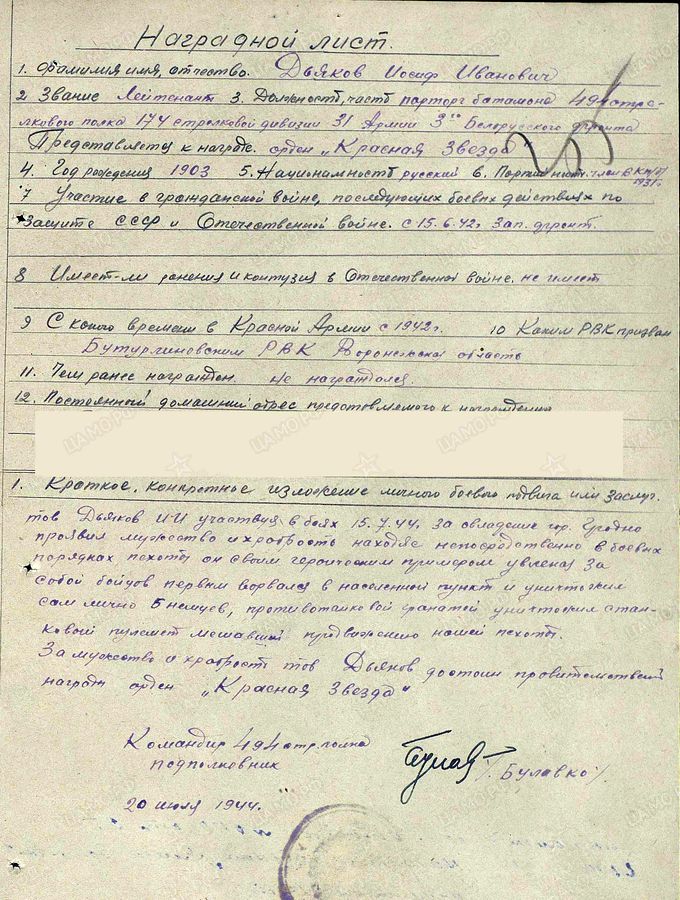 Наградной лист.
1. Фамилия имя, отчество. Дьяков Иосиф Иванович
2 Звание Лейтенант 3. Должность, часть парторг баталиона 494 стре-
лкового полка 174 стрелковой дивизии 31 Армии 3го Белорусского фронта
Представляется к награде. орден „Красная Звезда"
4. Год рождения 1903 5. Национальность русский 6. Партийност. член ВКП/б/
1931г
7 Участие в гражданской войне, последующих боевых действиях по
защите СССР и Отечественной войне. с 15.6.42г. Зап. фронт.
8 Имеет-ли ранения и контузия в Отечественной войне. не имеет
9 С какого времени в Красной Армии с 1942г. 10 Каким РВК призван
Бутурлиновским РВК Воронежская область
11. Чем ранее награжден. Не награждался.
12. Постоянный домашний адрес представляемого к награждению
1. Краткое, конкретное изложение личного боевого подвига или заслуг.
тов Дьяков ИИ участвуя в боях 15.7.44. за овладение гор. Гродно
проявил мужество и храбрость находяс непосредственно в боевых
порядках пехоты он своим героическим примером увлекая за
собой бойцов первым ворвался в населенной пункт и уничтожил
сам лично 5 немцев, противотанковой гранатой уничтожил стан-
ковый пулемет мешавший продвижению нашей пехоты.
За мужество и храброст тов Дьяков достоин правительствен
наград орден „Красная Звезда"
Командир 494 стр. полка
подполковник
/Булавко/
20 июля 1944г.